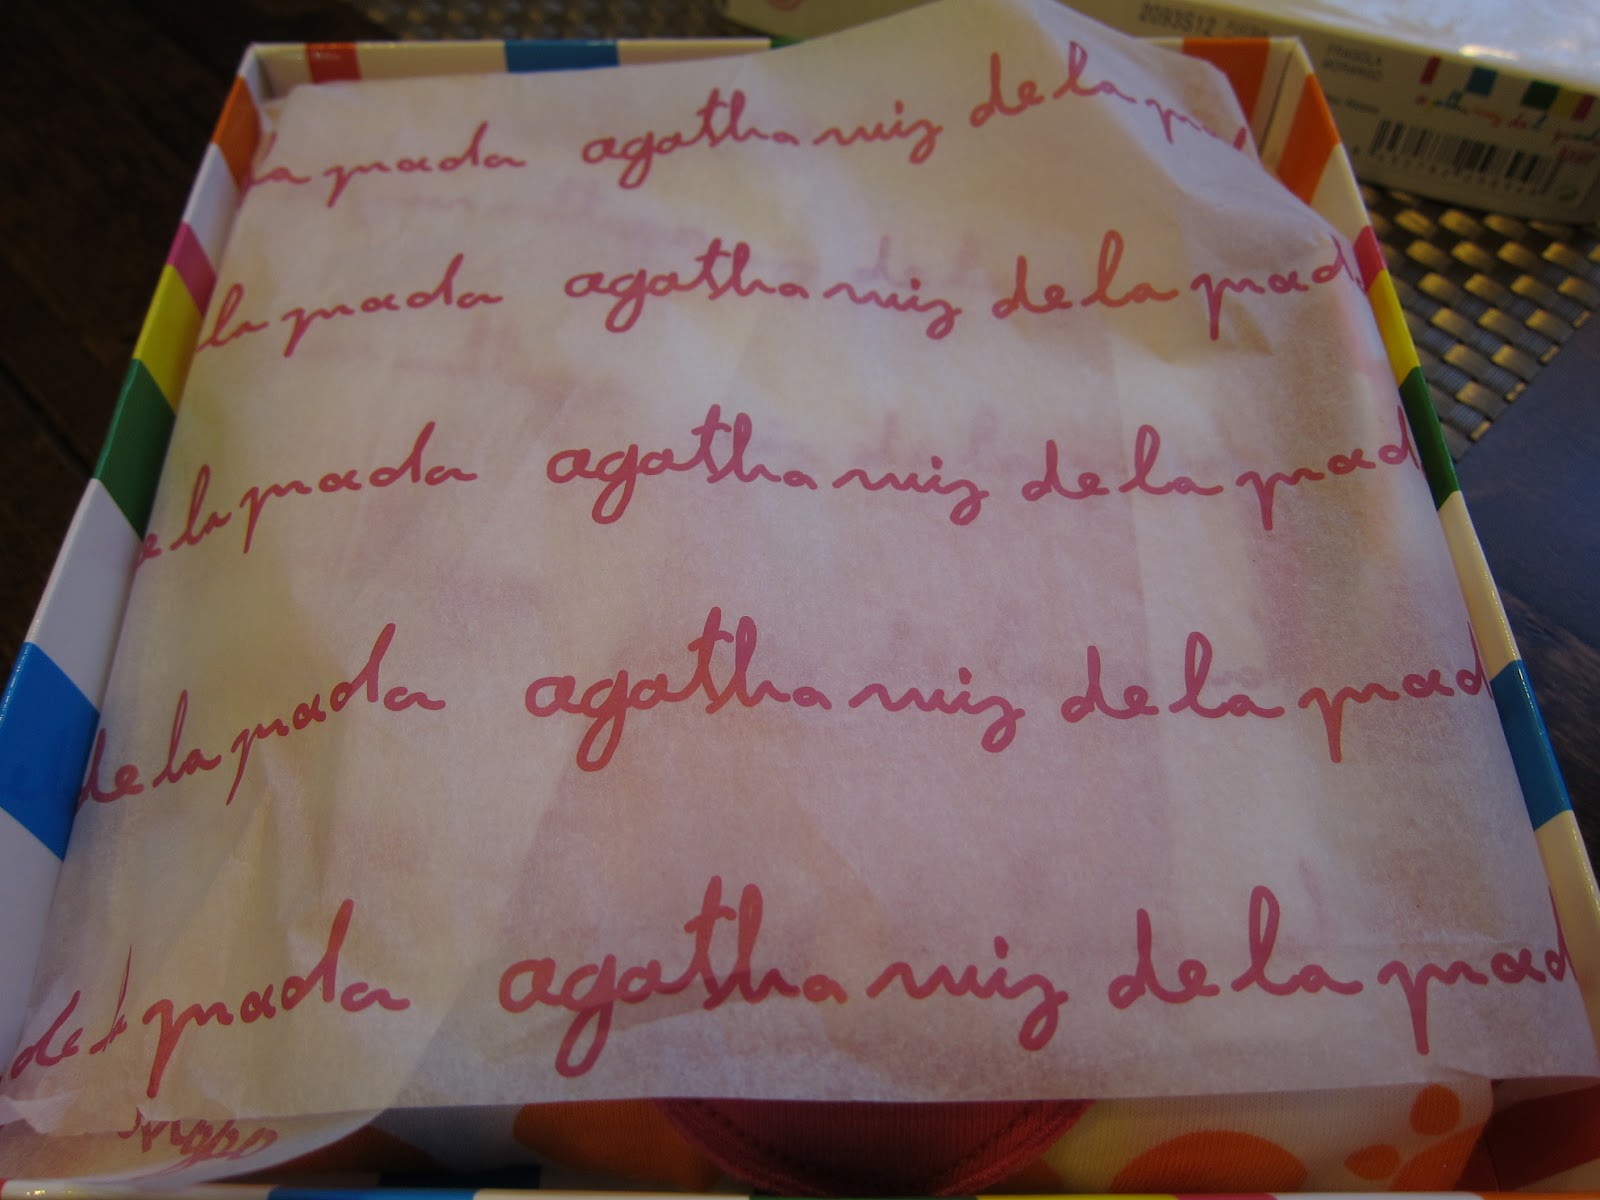 2093S12
FRAGOLA
MORANGO
la prada agatha ruiz de la prad
la prada agatha ruiz de la prada
e la prada agatha ruiz de la prad
de la prada agatha ruiz de la prad
de la prada agatha ruiz de la prad